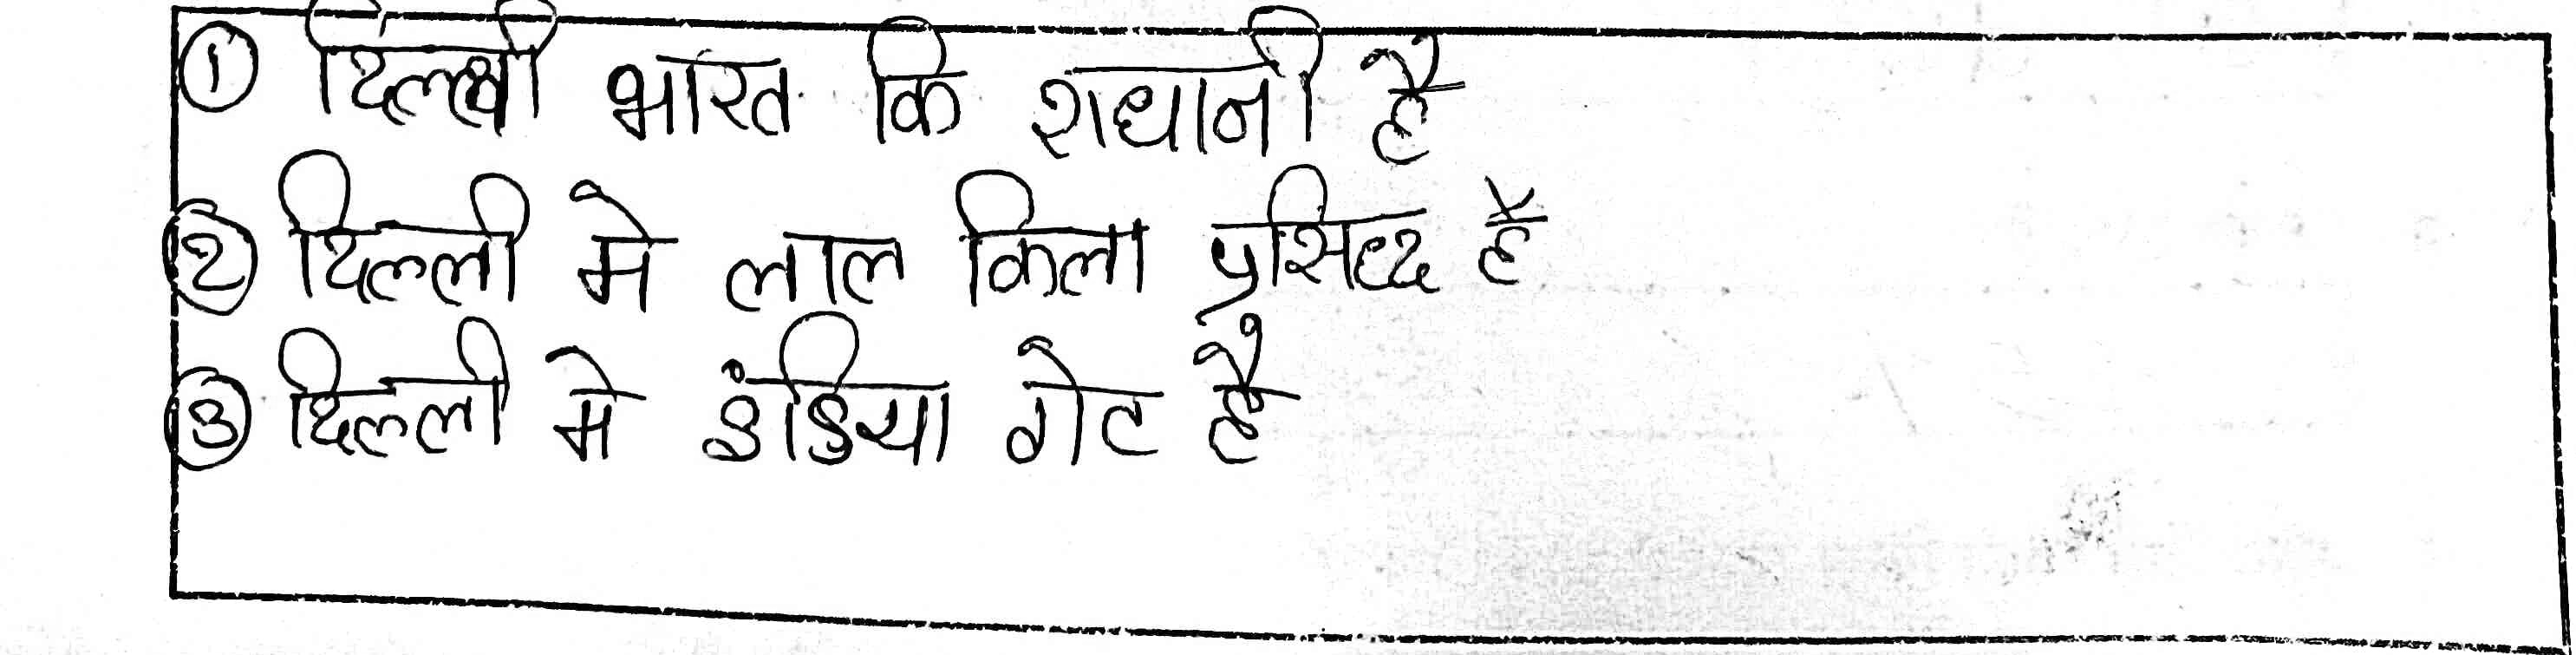 ① दिल्ली भारत कि राधानी है
② दिल्ली मे लाल किला प्रसिध्द है
③ दिल्ली मे इंडिया गेट है